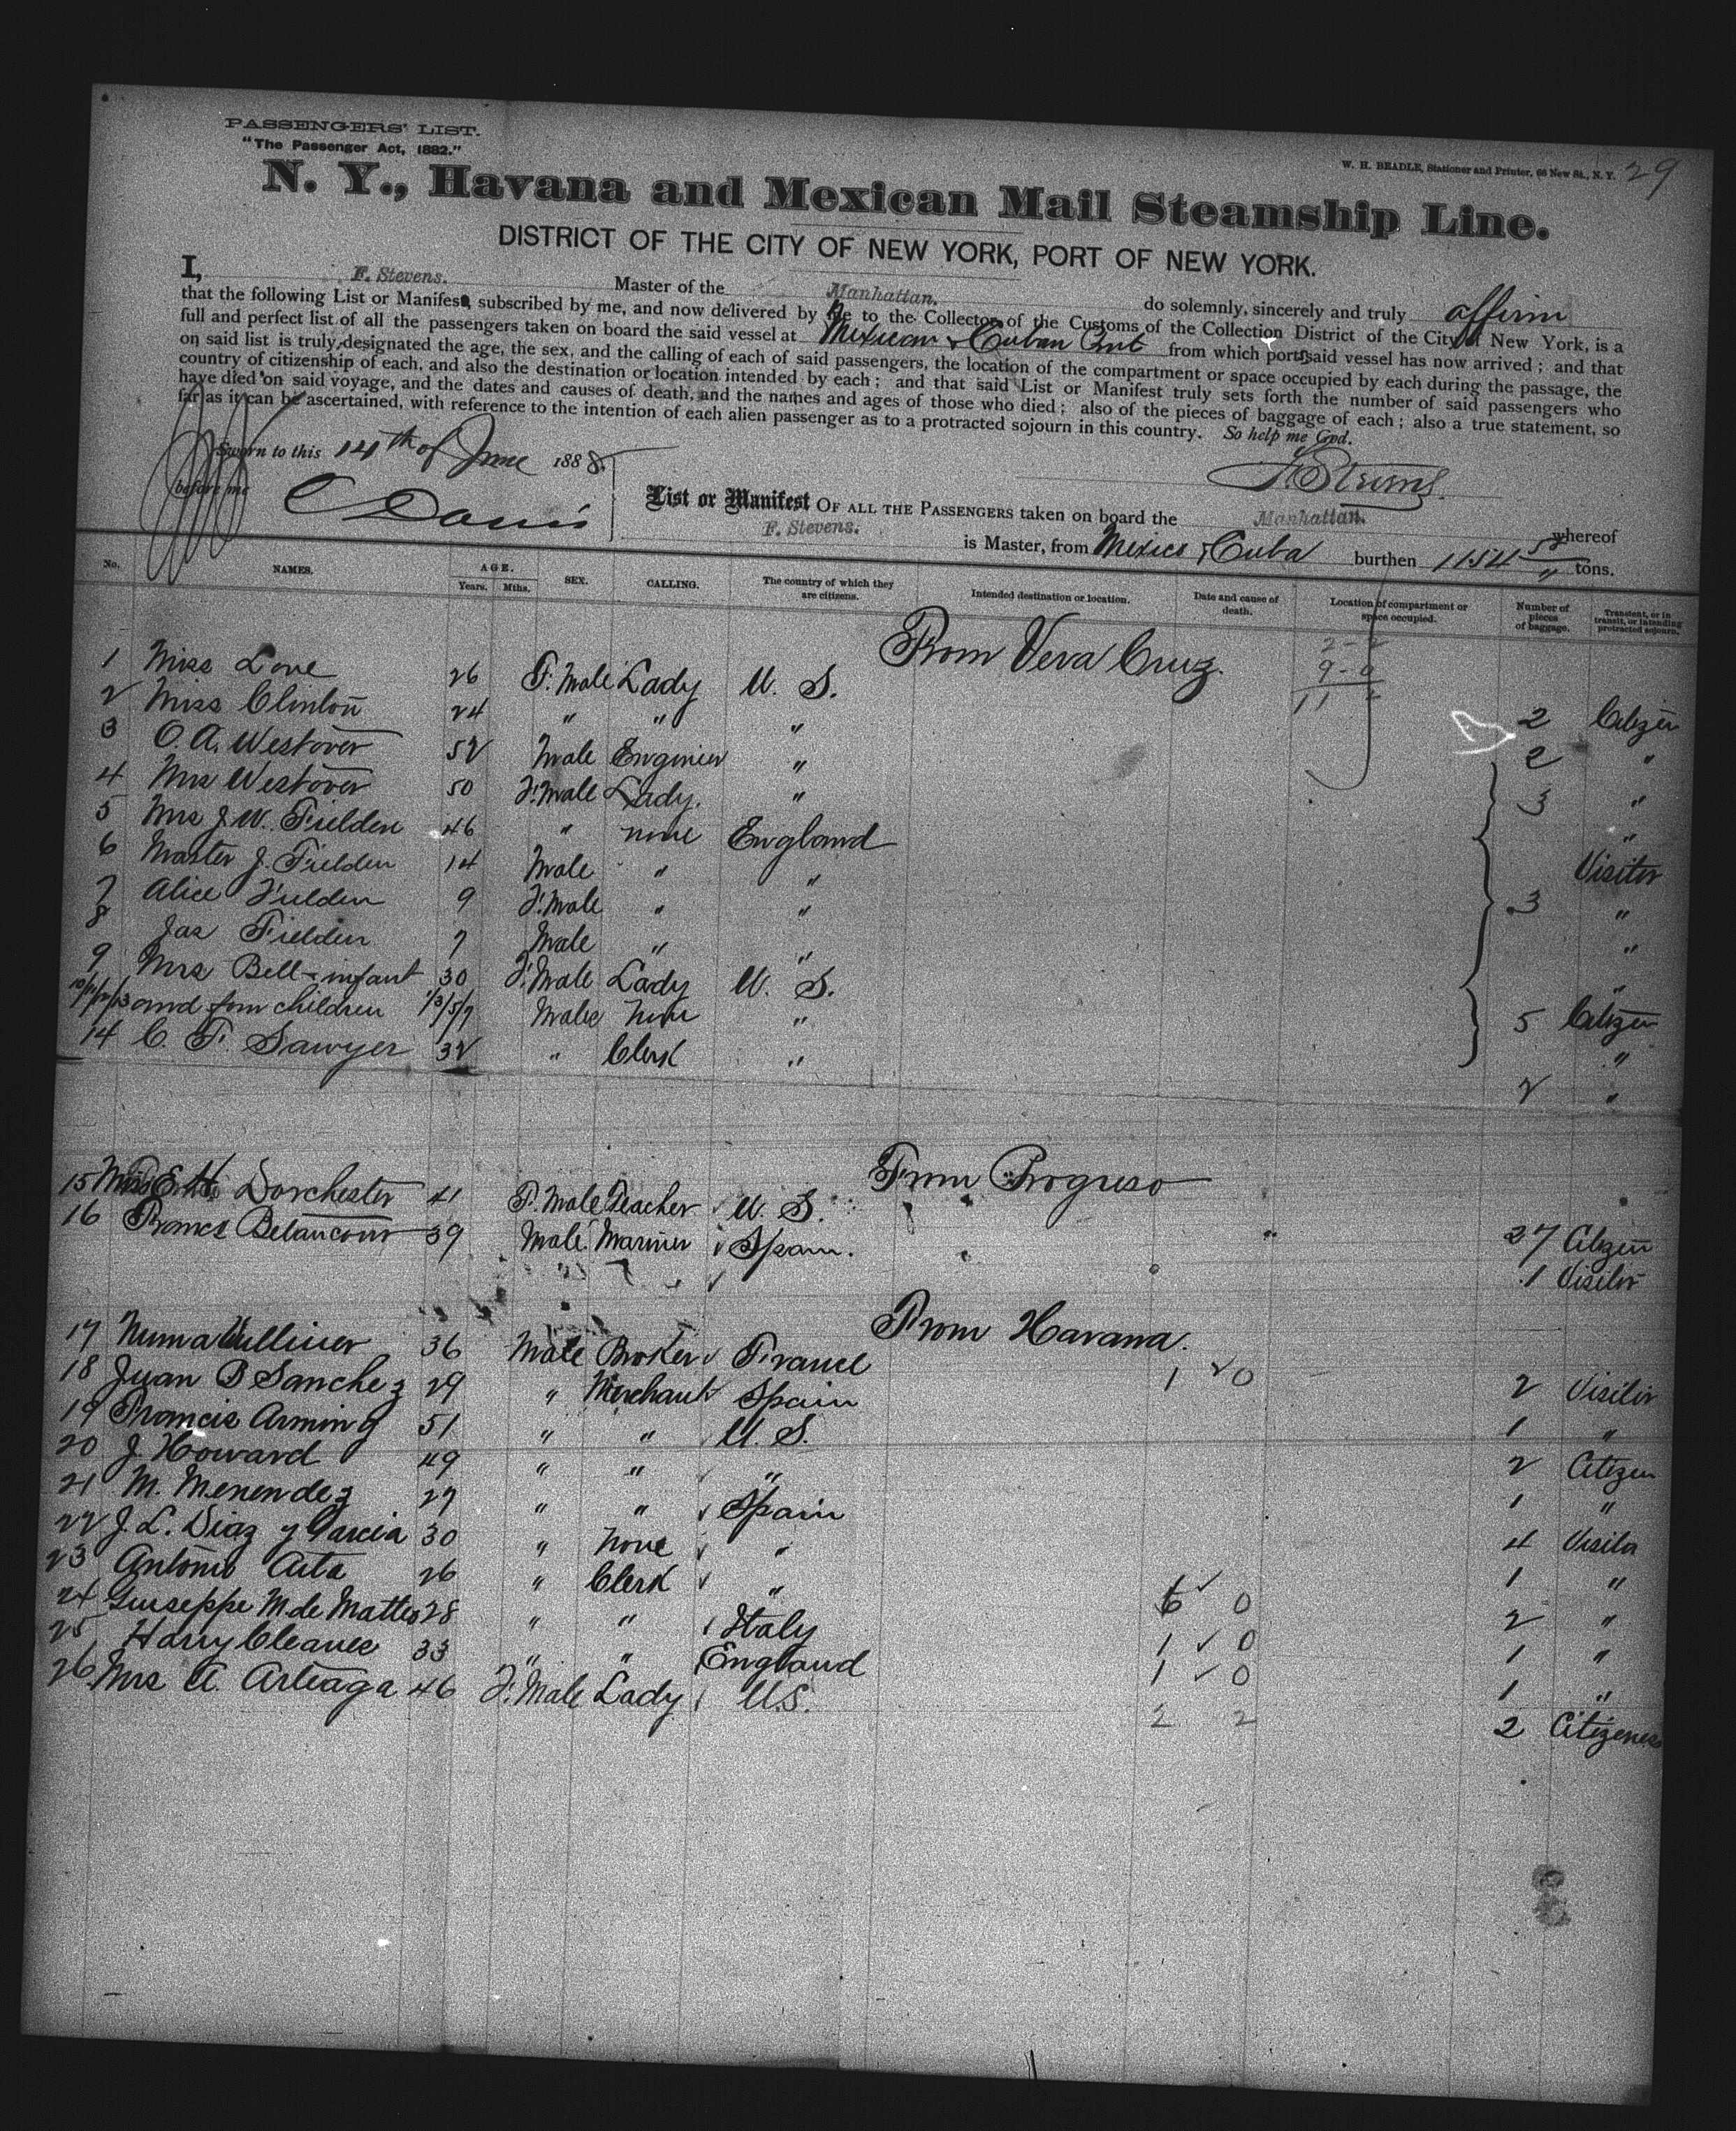 PASSENGERS' LIST.
"The Passenger Act, 1882."
W. H. BEADLE, Stationer and Printer, 66 New St., N. Y. 29
N. Y., Havana and Mexican Mail Steamship Line.
DISTRICT OF THE CITY OF NEW YORK, PORT OF NEW YORK.
I, F. Stevens. Master of the Manhattan. do solemnly, sincerely and truly affirm
that the following List or Manifest, subscribed by me, and now delivered by me to the Collector of the Customs of the Collection District of the City of New York, is a
full and perfect list of all the passengers taken on board the said vessel at Mexican & Cuban from which port said vessel has now arrived; and that
on said list is truly designated the age, the sex, and the calling of each of said passengers, the location of the compartment or space occupied by each during the passage, the
country of citizenship of each, and also the destination or location intended by each; and that said List or Manifest truly sets forth the number of said passengers who
have died on said voyage, and the dates and causes of death, and the names and ages of those who died; also of the pieces of baggage of each; also a true statement, so
far as it can be ascertained, with reference to the intention of each alien passenger as to a protracted sojourn in this country. So help me God.
Sworn to this 14th of June 1888.
before me
F. Stevens.
C Davis
List or Manifest OF ALL THE PASSENGERS taken on board the Manhattan. whereof
F. Stevens. is Master, from Mexico & Cuba burthen 1154 tons.
No. NAMES. AGE. Years. Mths. SEX. CALLING. The country of which they are citizens. Intended destination or location. Date and cause of death. Location of compartment or space occupied. Number of pieces of baggage. Transient, or in transit, or intending protracted sojourn.
From Vera Cruz.
1 Miss Love 26 F. Male Lady U. S. 2 Citizen
2 Miss Clinton 24 " " " 2 "
3 O. A. Westover 52 Male Enginier " 3 "
4 Mrs Westover 50 F. Male Lady. " "
5 Mrs J. W. Fielden 46 " none England Visitor
6 Master J. Fielden 14 Male " " 3 "
7 Alice Fielden 9 F. Male " " "
8 Jas Fielden 7 Male " " "
9 Mrs Bell - infant 30 F. Male Lady U. S. 5 Citizen
10/11/12/13 and four children 1/3/5/7 Males None " "
14 C. F. Sawyer 32 " Clerk " 2 "
From Progreso
15 Miss E. H. Dorchester 41 F. Male Teacher U. S. 27 Citizen
16 Betancour 39 Male Mariner Spain. 1 Visitor
From Havana.
17 Numa 36 Male Broker France 1 0 2 Visitor
18 Juan B Sanchez 29 " Merchant Spain 1 "
19 Francis Arming 51 " " U. S. 2 Citizen
20 J. Howard 49 " " " 1 "
21 M. Menendez 27 " " Spain 4 Visitor
22 J. L. Diaz y Garcia 30 " None " 1 "
23 Antonio 26 " Clerk " 6 0 2 "
24 Guiseppe M. de Matteo 28 " " Italy 1 0 1 "
25 Harry Cleaves 33 " " England 1 0 1 "
26 Mrs A. Arteaga 46 F. Male Lady U.S. 2 2 2 Citizeness